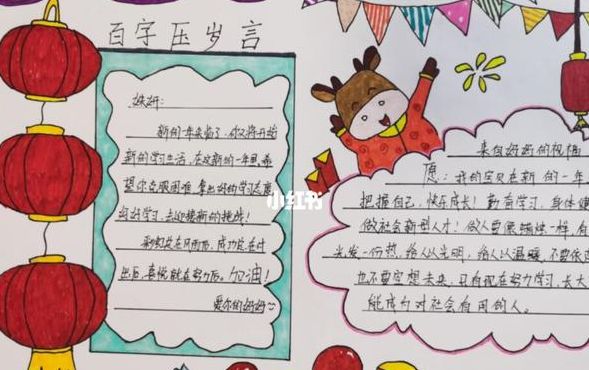 百字压岁言
新的一年来临了,你又将开始
新的学习生活,在这新的一年里,希
望你克服困难,拿出好的学习态度
好好学习,去迎接新的挑战!
彩虹总在风雨后,成功总在付
出后,喜悦就在努力后。加油!
爱你的妈妈
小红书
来自妈妈的祝福
愿:我的宝贝在新的一年
把握自己,快乐成长!勤奋学习,身体健
做社会新型人才!做人要像蜡烛一样,有
光发一份热,给人以光明,给人以温暖,不要依
也不要空想未来,只有现在努力学习,长大
能成为对社会有用的人。